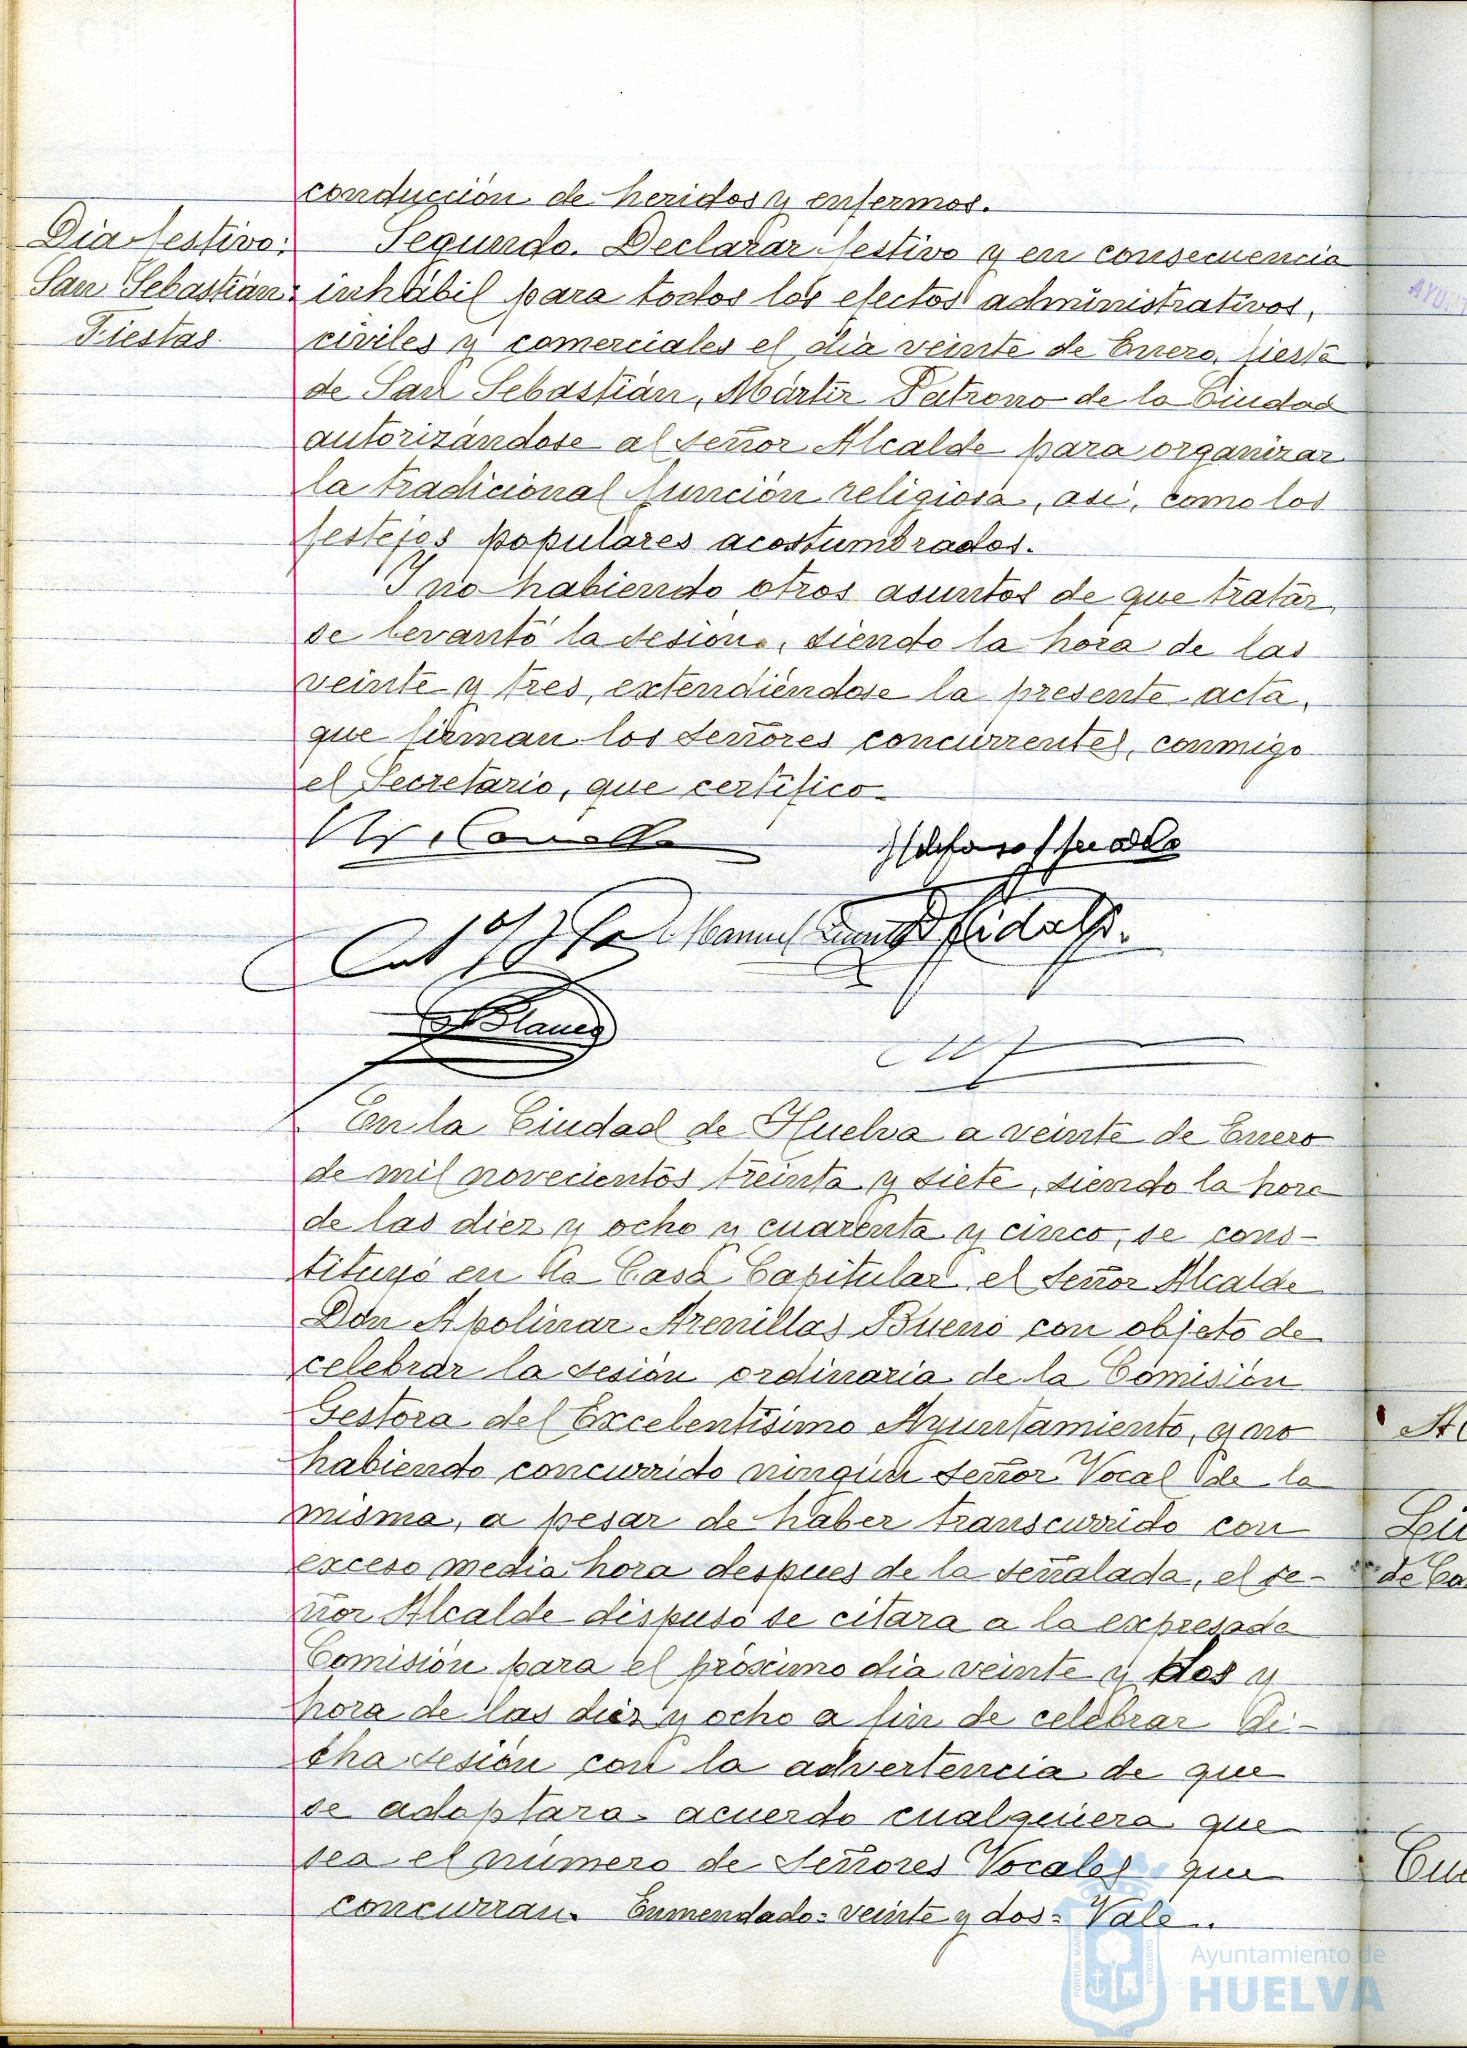 conducción de heridos y enfermos.
Dia festivo:
San Sebastián:
Fiestas.
Segundo. Declarar festivo y en consecuencia
inhábil para todos los efectos administrativos,
civiles y comerciales el dia veinte de Enero, fiesta
de San Sebastián, Mártir Patrono de la Ciudad
autorizándose al señor Alcalde para organizar
la tradicional función religiosa, asi, como los
festejos populares acostumbrados.
Y no habiendo otros asuntos de que tratar,
se levantó la sesión, siendo la hora de las
veinte y tres, extendiéndose la presente acta,
que firman los señores concurrentes, conmigo
el Secretario, que certifico.
Manuel
Hidalgo.
Blanco
En la Ciudad de Huelva a veinte de Enero
de mil novecientos treinta y siete, siendo la hora
de las diez y ocho y cuarenta y cinco, se cons-
tituyó en la Casa Capitular el señor Alcalde
Don Apolinar Arenillas Bueno con objeto de
celebrar la sesión ordinaria de la Comisión
Gestora del Excelentísimo Ayuntamiento, y no
habiendo concurrido ningún señor Vocal de la
misma, a pesar de haber transcurrido con
exceso media hora despues de la señalada, el se-
ñor Alcalde dispuso se citara a la expresada
Comisión para el próximo dia veinte y dos y
hora de las diez y ocho a fin de celebrar di-
cha sesión con la advertencia de que
se adoptara acuerdo cualquiera que
sea el número de señores Vocales que
concurran. Enmendado = veinte y dos = Vale.
Ayuntamiento de
HUELVA